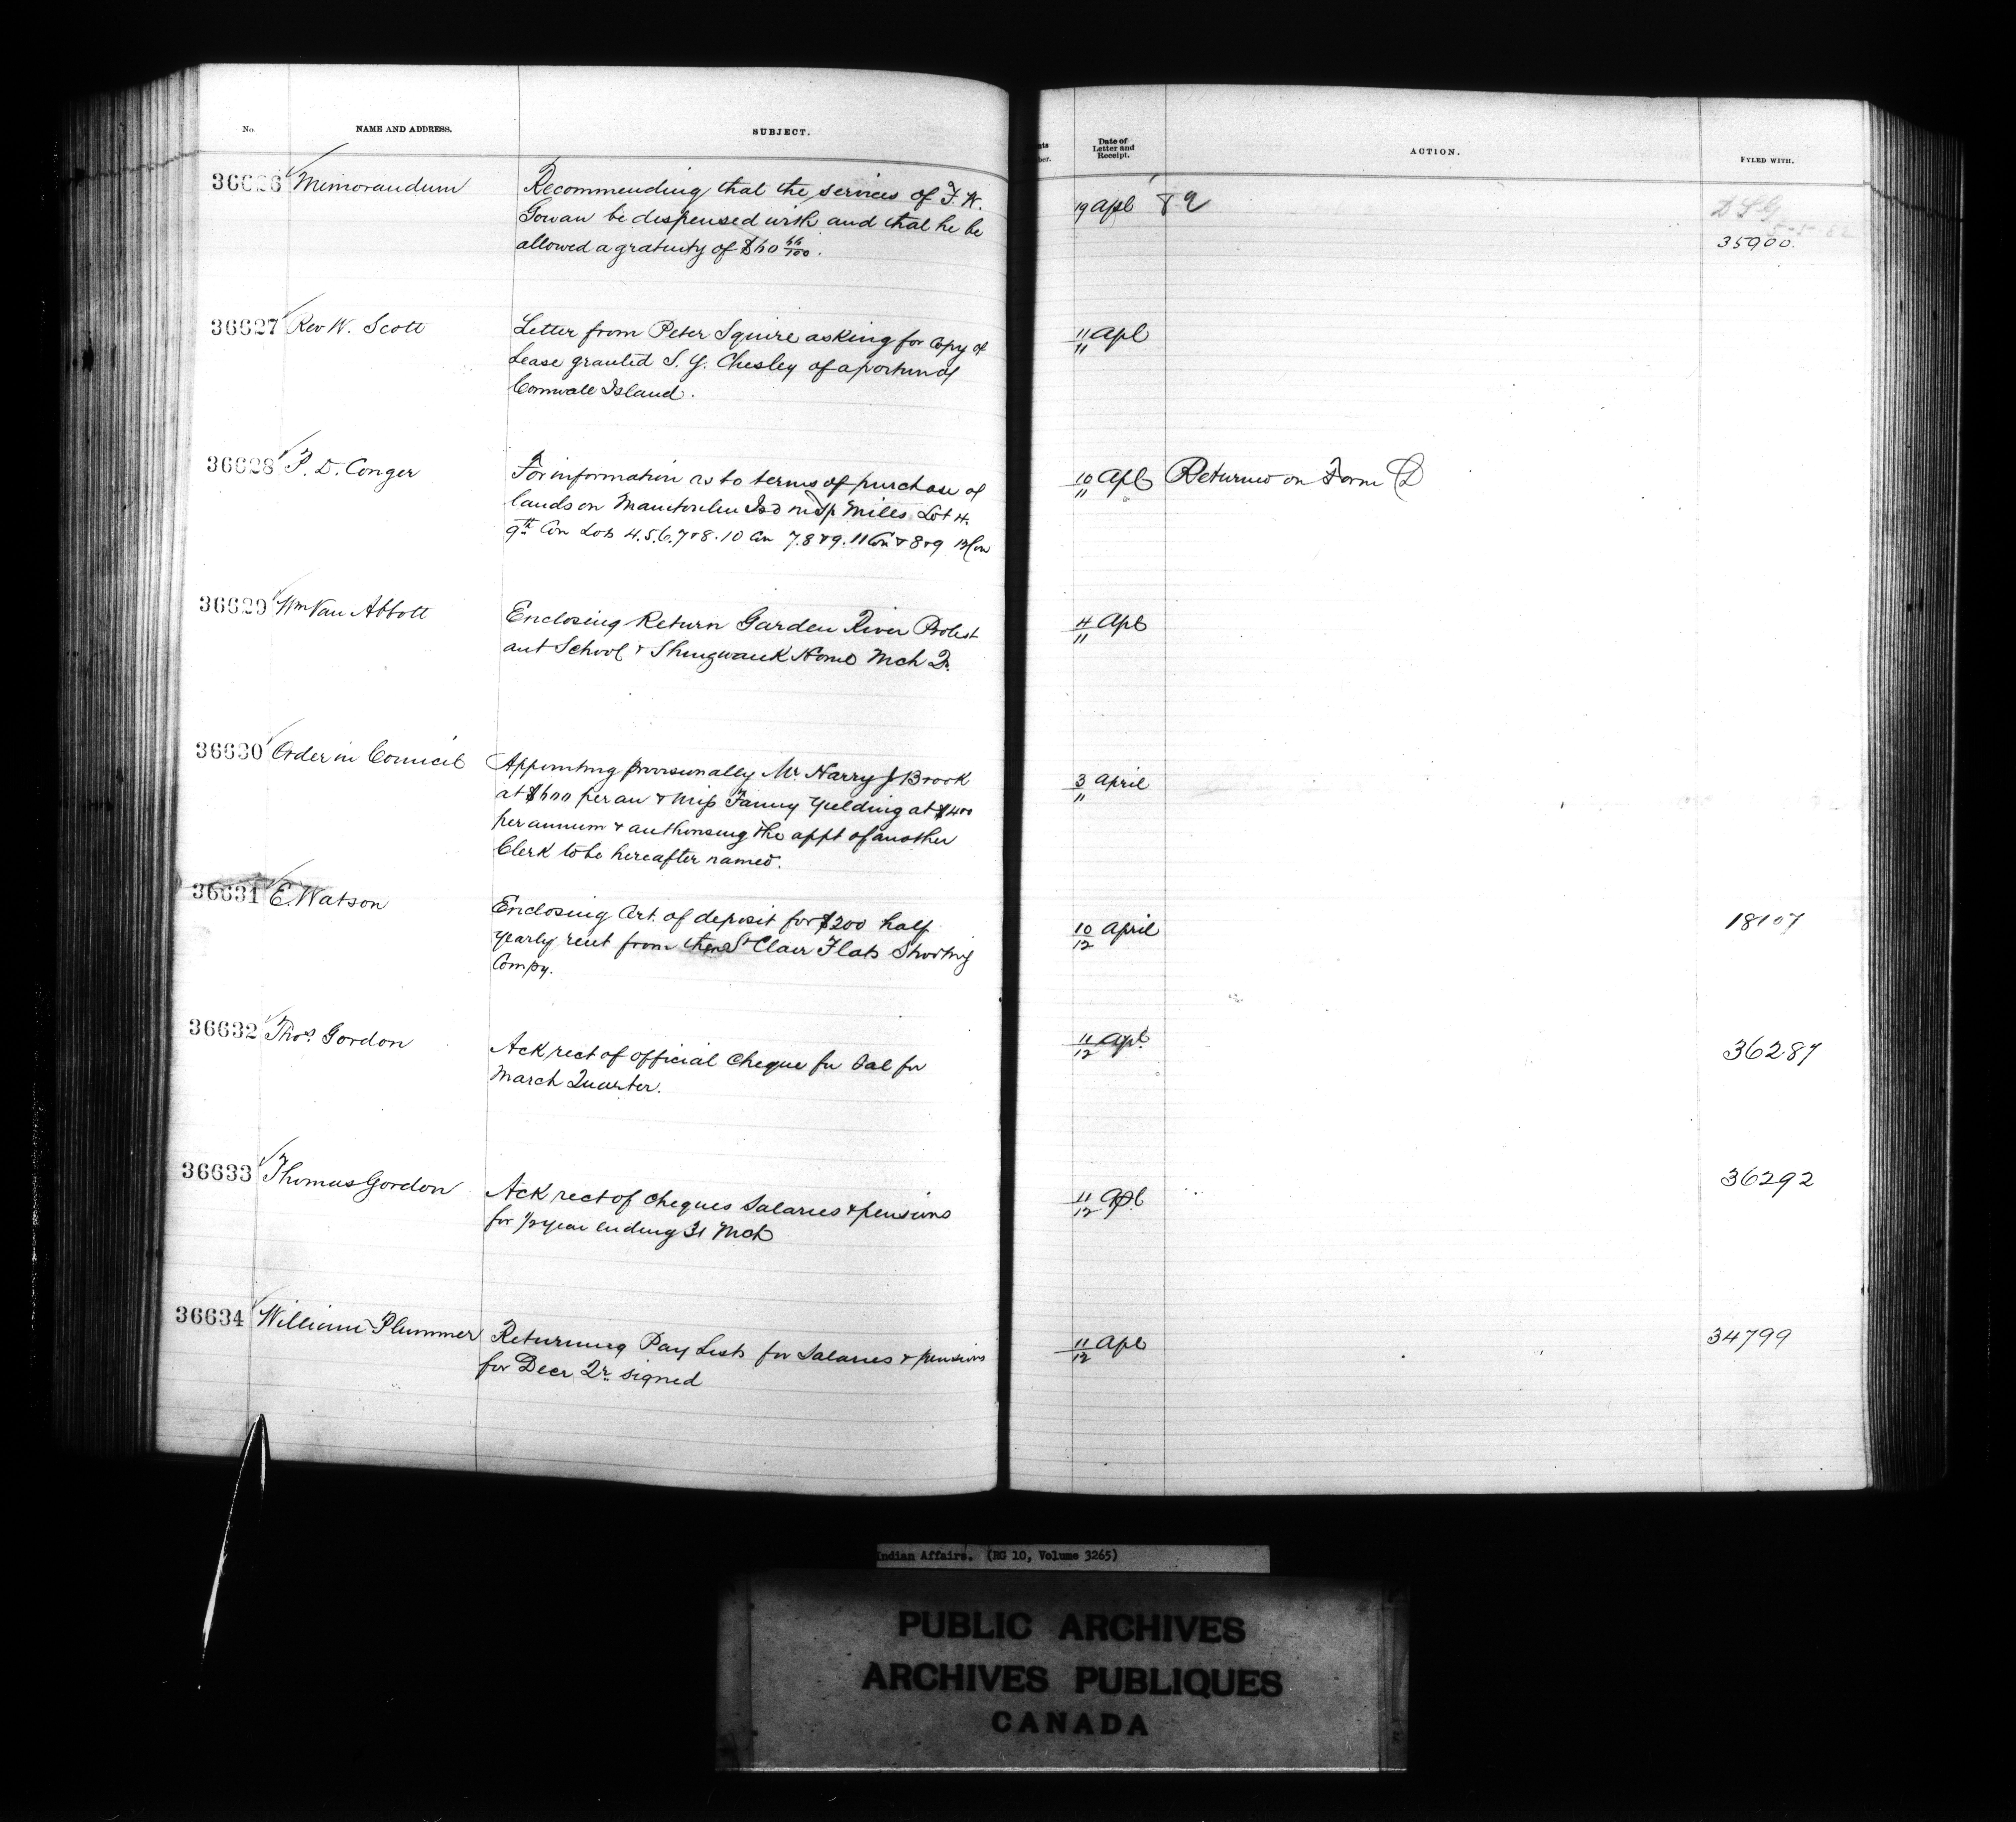 No. NAME AND ADDRESS. SUBJECT.
Date of Letter and Receipt. ACTION. FYLED WITH.
36626 Memorandum
Recommending that the services of F. W.
Gowan be dispensed with and that he be
allowed a gratuity of $60 66/100.
19 Apl
D S G
35900.
36627 Rev W. Scott
Letter from Peter Squire asking for Copy of
Lease granted S. Y. Chesley of a portion of
Cornwall Island.
11/11 Apl
36628 P. D. Conger
For information as to terms of purchase of
lands on Manitoulin Isd Tp Mills Lot 4.
9th Con Lots 4.5.6.7 & 8. 10 Con 7.8 & 9. 11 Con & 8 & 9 12 Con
10/11 Apl Returned on Form D
36629 Wm Van Abbott
Enclosing Return Garden River Protest
ant School & Shingwauk Home Mch Qr.
4/11 Apl
36630 Order in Council
Appointing provisionally Mr. Harry J Brook
at $600 per an & Miss Fanny Yielding at $400
per annum & authorising the appt of another
Clerk to be hereafter named.
3/11 April
36631 E. Watson
Enclosing Crt. of deposit for $200 half
yearly rent from the St Clair Flats Shooting
Compy.
10/12 April
18107
36632 Thos. Gordon
Ack rect of official Cheque for Sal for
March Quarter.
11/12 Apl
36287
36633 Thomas Gordon
Ack rect of Cheques Salaries & pensions
for 1/2 year ending 31 Mch
11/12 Apl
36292
36634 William Plummer
Returning Pay Lists for Salaries & pensions
for Decr Qr. signed
11/12 Apl
34799
Indian Affairs. (RG 10, Volume 3265)
PUBLIC ARCHIVES
ARCHIVES PUBLIQUES
CANADA